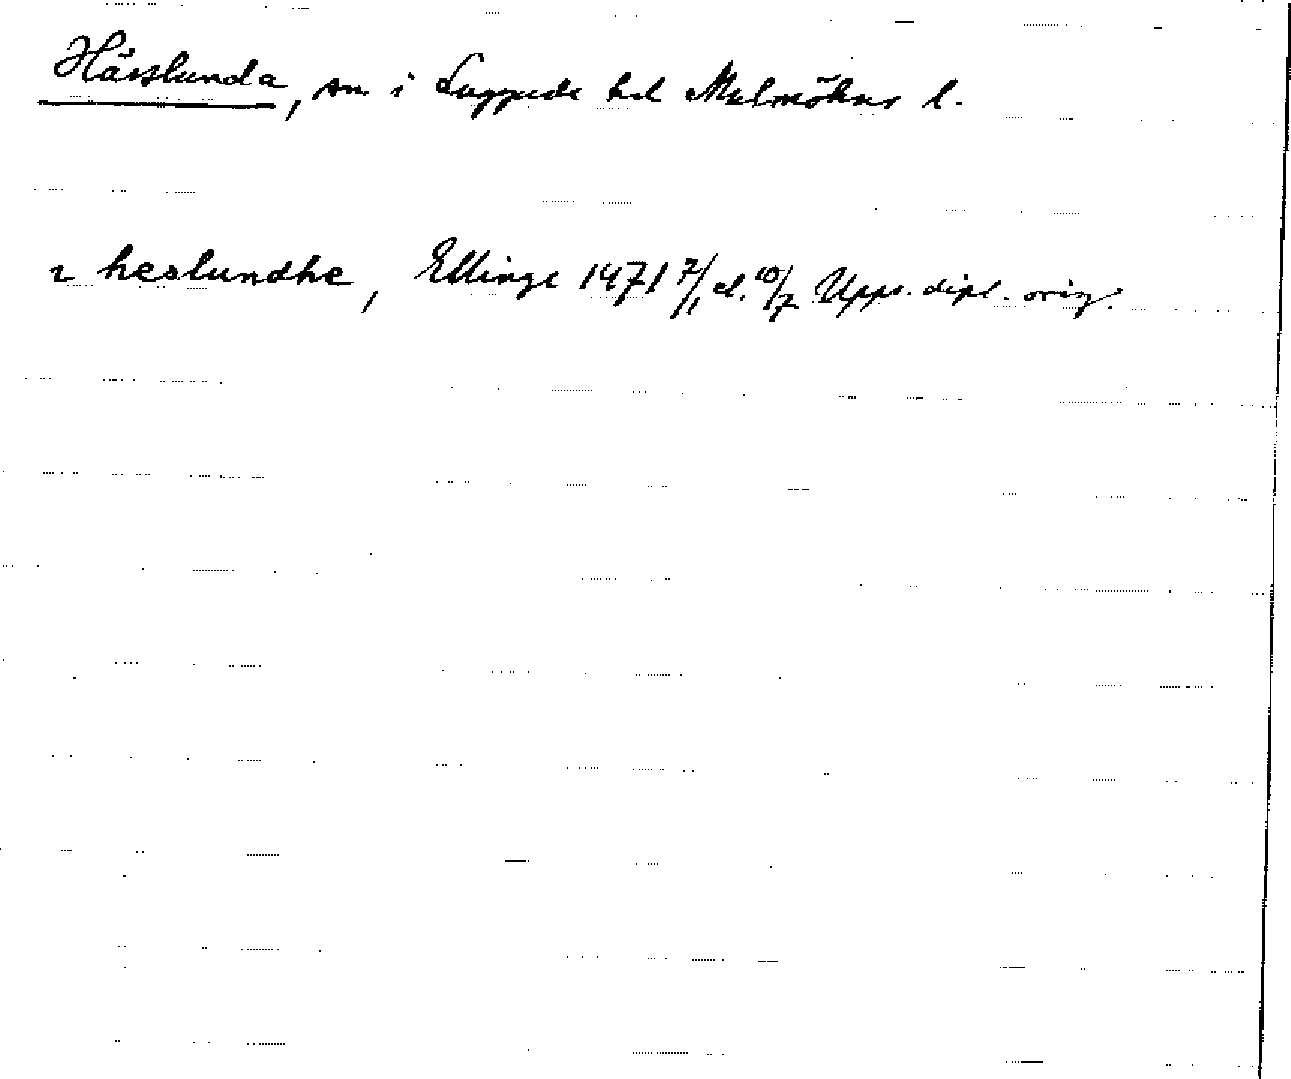 Hässlunda, sn i Luggude hd Malmöhus l.
i heslundhe, Ellinge 1471 7/1 el. 10/7 Upps. dipl. orig.